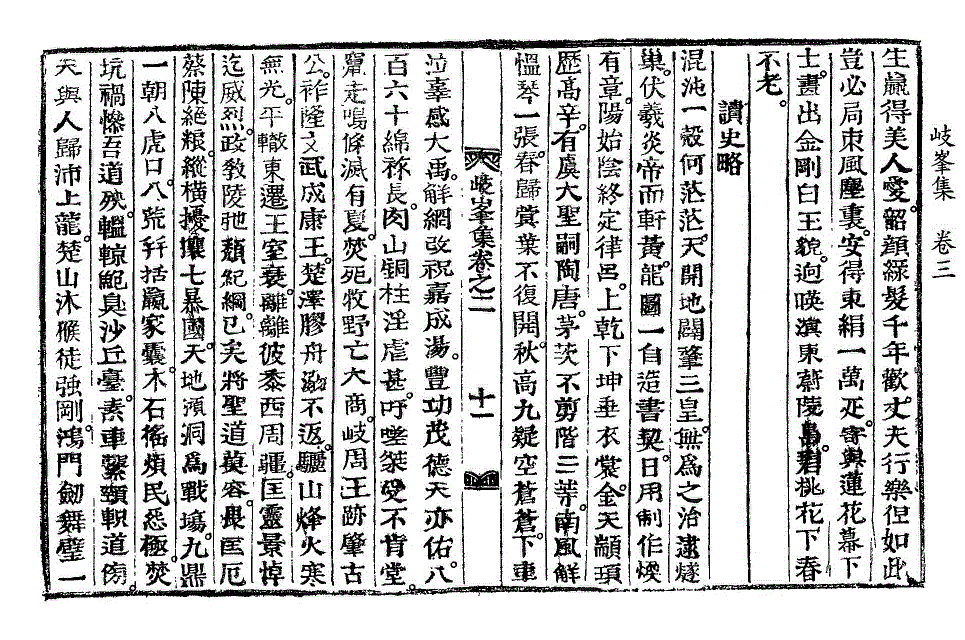 岐峯集　卷三
生贏得美人愛。韶顔綠髮千年歡。丈夫行樂但如此
豈必局束風塵裏。安得東絹一萬疋。寄與蓮花幕下
士。畫出金剛白玉貌。逈暎滇東蔚陵島。碧桃花下春
不老。
讀史略
混沌一殼何茫茫。天開地闢肇三皇。無爲之治逮燧
巢。伏羲炎帝而軒黃。龍圖一自造書契。日用制作煥
有章。陽始陰終定律呂。上乾下坤垂衣裳。金天顓頊
歷高辛。有虞大聖嗣陶唐。茅茨不剪階三等。南風解
慍琴一張。春歸蓂葉不復開。秋高九疑空蒼蒼。下車
岐峯集卷之二　十一
泣辜感大禹。解網改祝嘉成湯。豐功茂德天亦佑。八
百六十綿祚長。肉山銅柱淫虐甚。吁嗟桀受不肯堂。
竄走鳴條滅有夏。焚死牧野亡大商。岐周王跡肇古
公。祚隆文武成康王。楚澤膠舟溺不返。驪山烽火寒
無光。平轍東遷王室衰。離離彼黍西周疆。匡靈景悼
迄威烈。政敎陵弛頹紀綱。已矣將聖道莫容。畏匡厄
蔡陳絕粮。縱橫擾攘七暴國。天地澒洞爲戰場。九鼎
一朝入虎口。八荒幷括嬴家囊。木石徭煩民怨極。焚
坑禍慘吾道殃。轀輬鮑臭沙丘臺。素車繫頸軹道傍。
天與人歸沛上龍。楚山沐猴徒強剛。鴻門劒舞璧一